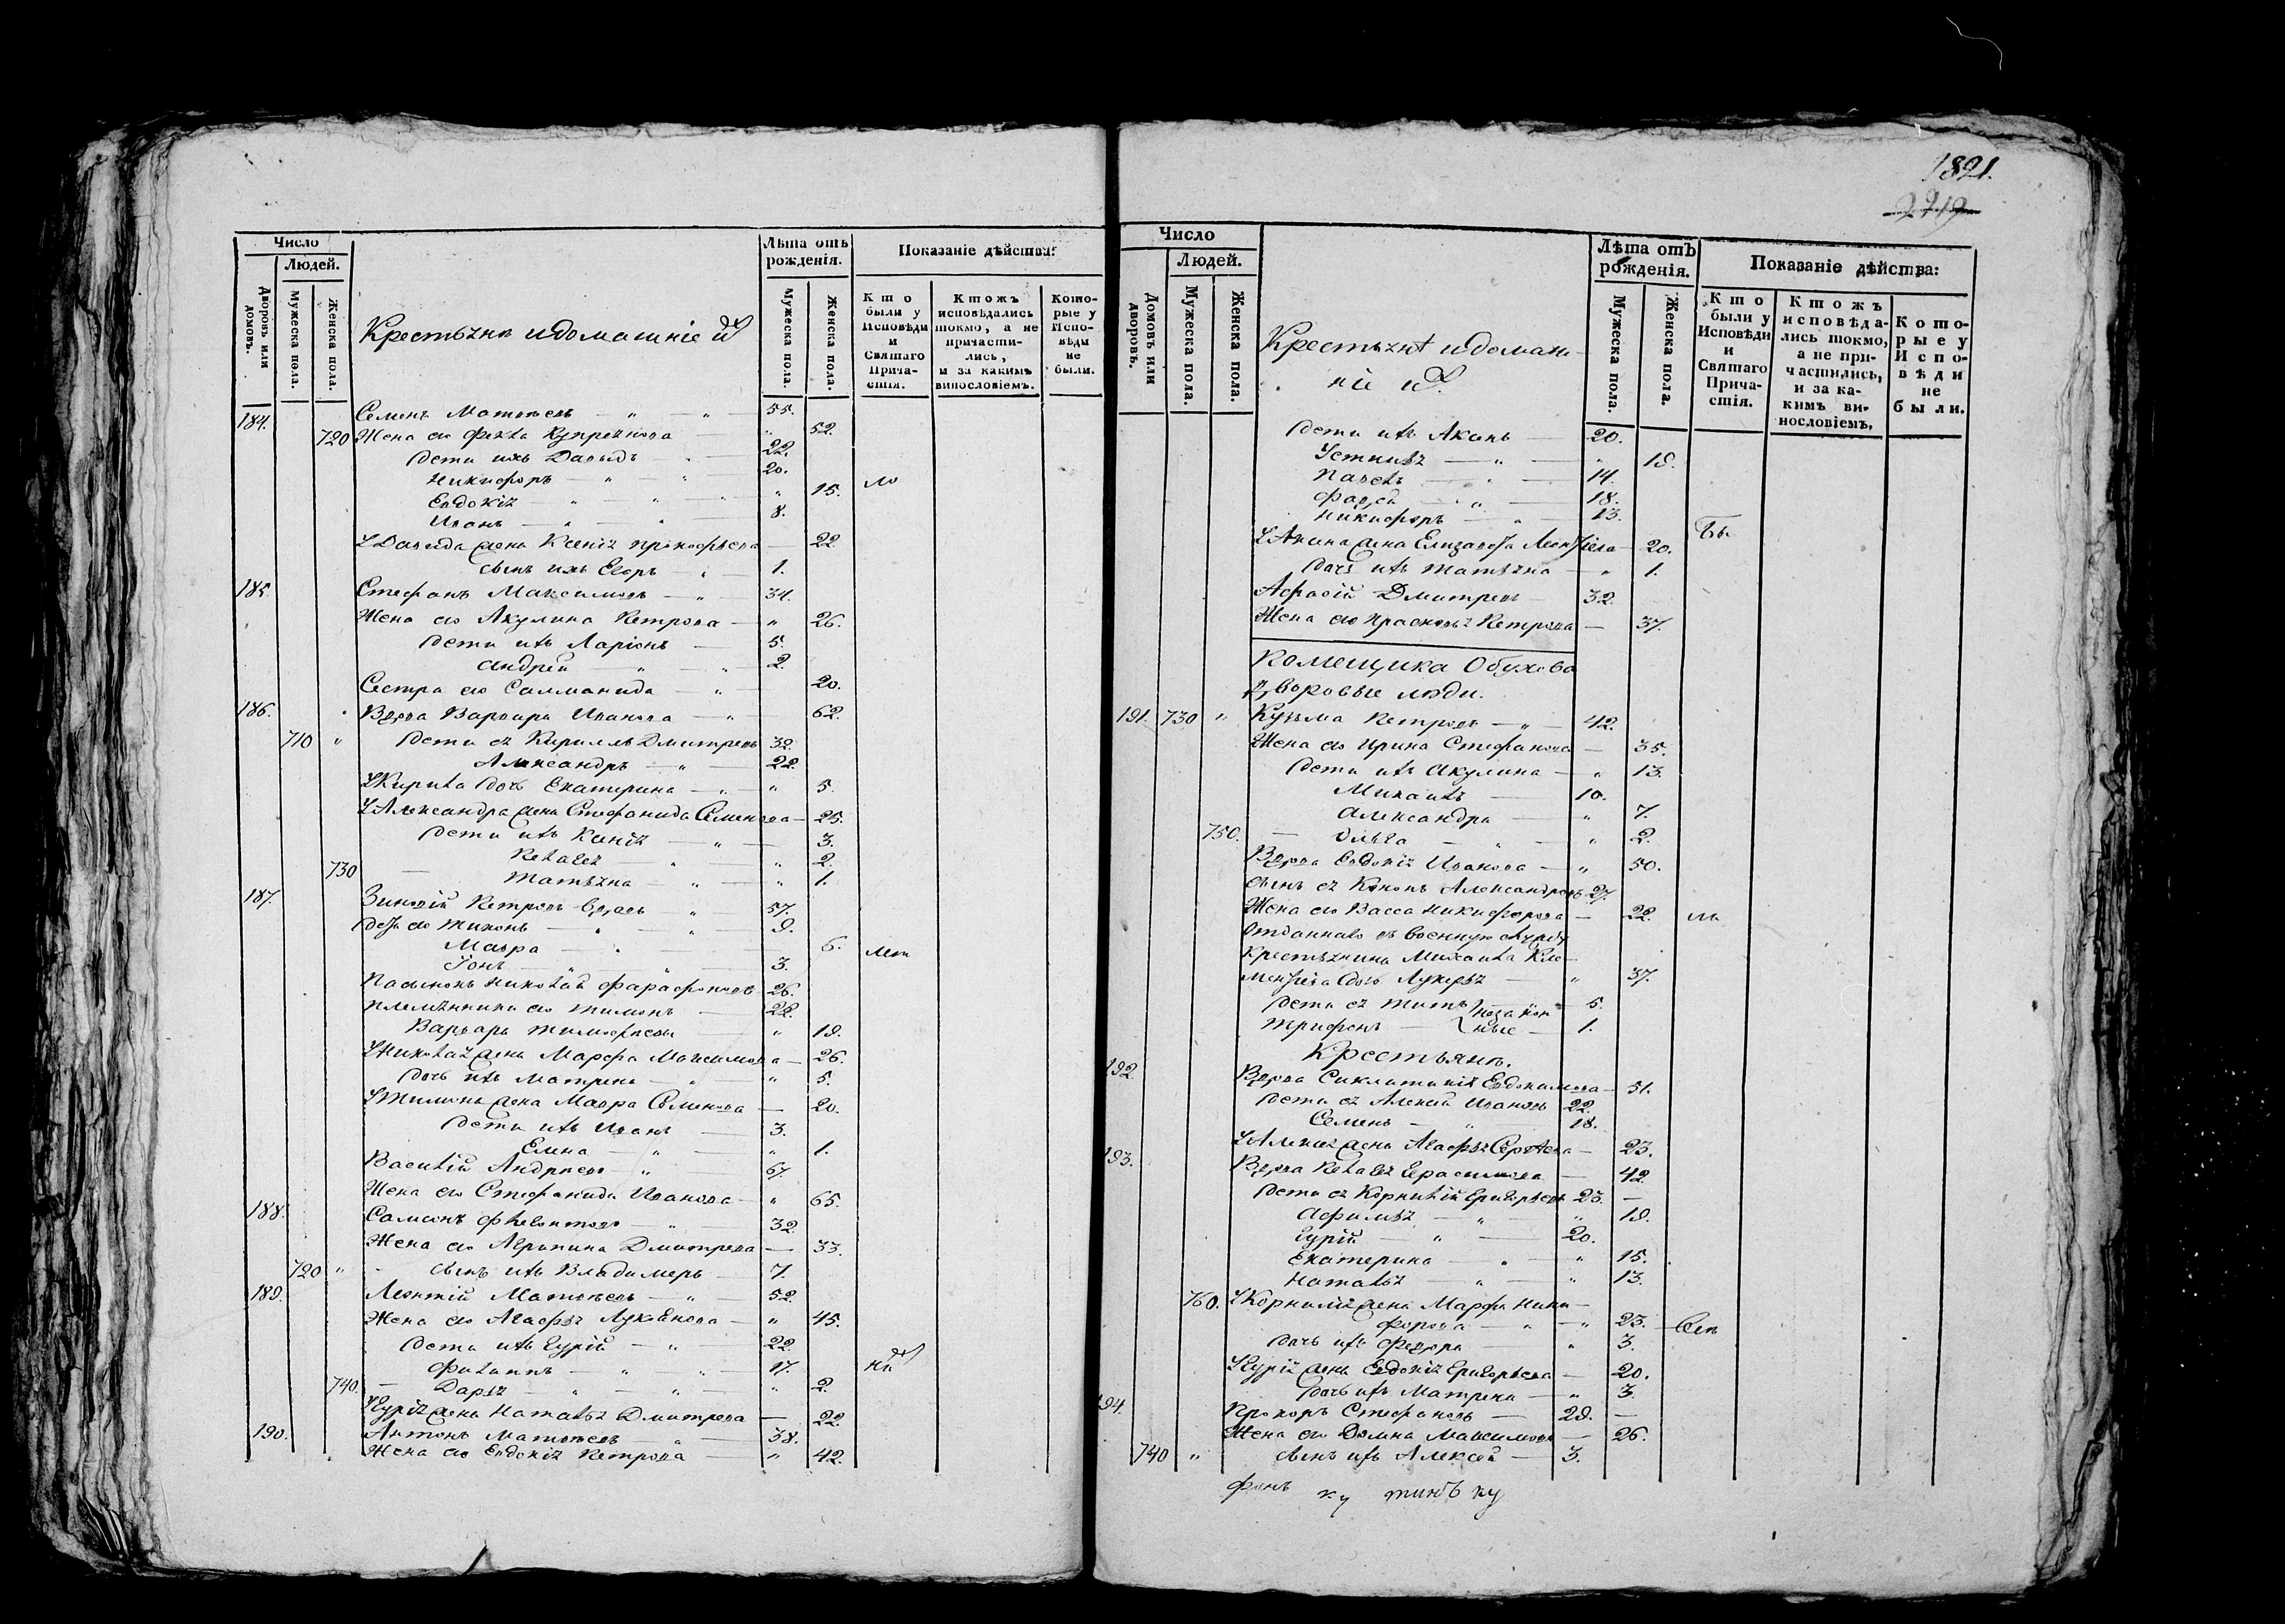 Число
Людей.
Дворовъ или домовъ.
Мужеска пола.
Женска пола.
Крестьяне и домашніе ихъ
Лѣта отъ рожденія.
Мужеска пола.
Женска пола.
Показаніе дѣйства:
Кто были у Исповѣди и Святаго Причастія.
Ктожъ исповѣдались токмо, а не причастились, и за какимъ винословіемъ.
Которые у Исповѣди не были.
184. Семенъ Матвеевъ — " — " — 55.
720 Жена его Фекла Купреянова — " 52.
Дети ихъ Давыдъ — 22.
Никифоръ — " 20.
Евдокія — " — " " 15.
Иванъ — " — " 8.
У Давыда жена Ксенія Прокофьева — 22.
сынъ ихъ Егоръ — " — 1.
185. Стефанъ Максимовъ — " — 34.
Жена его Акулина Петрова — " 26.
Дети ихъ Ларіонъ — 5.
Андрей " " 2.
Сестра его Саламанида — " — 20.
186. Вдова Варвара Иванова — " — 62.
710 " Дети ея Кириллъ Дмитревъ 32.
Александръ — " — 22.
У Кирила дочь Екатерина — " — " 5.
У Александра жена Стефанида Семенова — 25.
Дети ихъ Ксенія — " — 3.
Пелагея — " — " 2.
730 — Татьяна — " — " 1.
187. Зиновій Петровъ вдовъ — " — 57.
Дети его Тихонъ — " — " — 9.
Мавра — " — 6.
Іонъ — 3.
Пасынокъ Николай Фарафоновъ 26.
племянники его Тимонъ — 22.
Варвара Тимофеева — " 19.
У Николая жена Марфа Максимова — 26.
дочь ихъ Матрена — " — " 5.
У Тимона жена Мавра Семенова — 20.
Дети ихъ Иванъ — 3.
Елена — " — " 1.
Василій Андреевъ — " 67.
Жена его Стефанида Иванова — " 65.
188. Самсонъ Флегонтовъ — " — 32.
Жена его Агрипина Дмитрева — 33.
720 " сынъ ихъ Владимеръ — 7.
189. Леонтій Матвеевъ — " — 52.
Жена его Агафья Лукоянова — " 45.
Дети ихъ Гурій — " 22.
Филиппъ — " — " — 17.
740. — Дарья — " — " — " 2.
У Гурія жена Наталья Дмитрева — 22.
190. Антонъ Матвеевъ — " — 38.
Жена его Евдокія Петрова — " 42.
1821.
2219
Число
Людей.
Домовъ или дворовъ.
Мужеска пола.
Женска пола.
Крестьяне и домашніе ихъ.
Лѣта отЪ рожденія.
Мужеска пола.
Женска пола.
Показаніе дѣйства:
Кто были у Исповѣди и Святаго Причастія.
Ктожъ исповѣдались токмо, а не причастились, и за какимъ винословіемъ.
Которые у Исповѣди не были.
Дети ихъ Акинъ — 20.
Устинья — " — " 19.
Павелъ — " — 14.
Фадей — " — 18.
Никифоръ — " — 13.
У Акина жена Елизавета Леонтьева — 20.
Дочь ихъ Татьяна — " 1.
Афрасій Дмитревъ 32.
Жена его Прасковья Петрова — 37.
Помещика Обухова
Дворовые люди.
191. 730 " Кузьма Петровъ — " — 42.
Жена его Ирина Стефанова — 35.
Дети ихъ Акулина — " 13.
Михаилъ — 10.
Александра — " 7.
750. — Ольга — " — " 2.
Вдова Евдокія Иванова — " 50.
сынъ ея Кононъ Александровъ 27.
Жена его Васса Никифорова — 22.
Отданнаго въ военную службу
крестьянина Михаила Кле-
ментьева дочь Лукерья — " 37.
Дети ея Титъ незакон — 5.
Трифонъ — ные — 1.
Крестьяне.
192. Вдова Синклитикія Евдокимова — 51.
Дети ея Алексей Ивановъ 22.
Семенъ — " — 18.
У Алексея жена Агафья Сергеева — 23.
193. Вдова Пелагея Герасимова — 42.
Дети ея Корнилій Григорьевъ 23. —
Афимья — " — " 19.
Гурій — " — 20.
Екатерина — " — " 15.
Наталья — " — " 13.
760. У Корнилія жена Марфа Ники-
форова — " — " 23.
дочь ихъ Федора — " 3.
У Гурія жена Евдокія Григорьева — 20.
дочь ихъ Матрена — " 3.
194. Прохоръ Стефановъ — 29. —
Жена его Домна Максимова — 26.
740 " сынъ ихъ Алексей — 3.